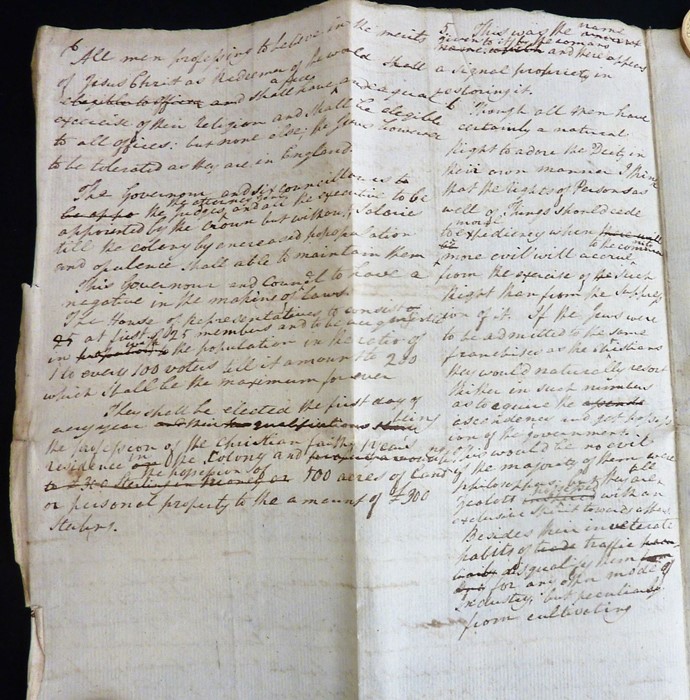 6 All men professing to believe in the merits
of Jesus Christ as Redeemer of the world shall
eligible to offices and shall have a free and equal
exercise of their religion and shall be elegible
to all offices: but none else; the Jews however
to be tolerated as they are in England
The Governour and six councillors is to
be appo the Judges, the attorney Gen. and all the executive to be
appointed by the Crown but without Salarie
till the colony by an encreased popopulation
and opulence shall able to maintain them
This Governour and Council to have a
negative in the making of laws.
The House of Representatives to consist
25 at first of 25 members and to be
in with the population in the ratio of
1 to every 100 voters till it amount to 200
which shall be the maximum for ever
They shall be elected the first day of
every year and their qualifications being
the profession of the christian faith, years
residence in the Colony and
the possession of or 500 acres of land
or personal property to the amount of £300
Sterling.
5. This was the name
given to it by the Romans
and there appears
a signal propriety in
restoring it.
6 Though all men have
certainly a natural
right to adore the Deity in
their own manner I think
that the rights of Persons as
well as of Things should cede
to expediency when
more evil will accrue to the community
from the exercise of such
right than from the suppress
ion of it. If the Jews were
to be admitted to the same
franchises as the Christians
they would naturally resort
thither in such numbers
as to acquire the
ascendency and get possess
ion of the government.
This would be no evil
if the majority of them were
philosophers; but they are all
zealots with an
exclusive spirit towards others
Besides their inveterate
habits of trade traffic
disqualify them
for any other mode of
Industry, but peculiarly
from cultivating